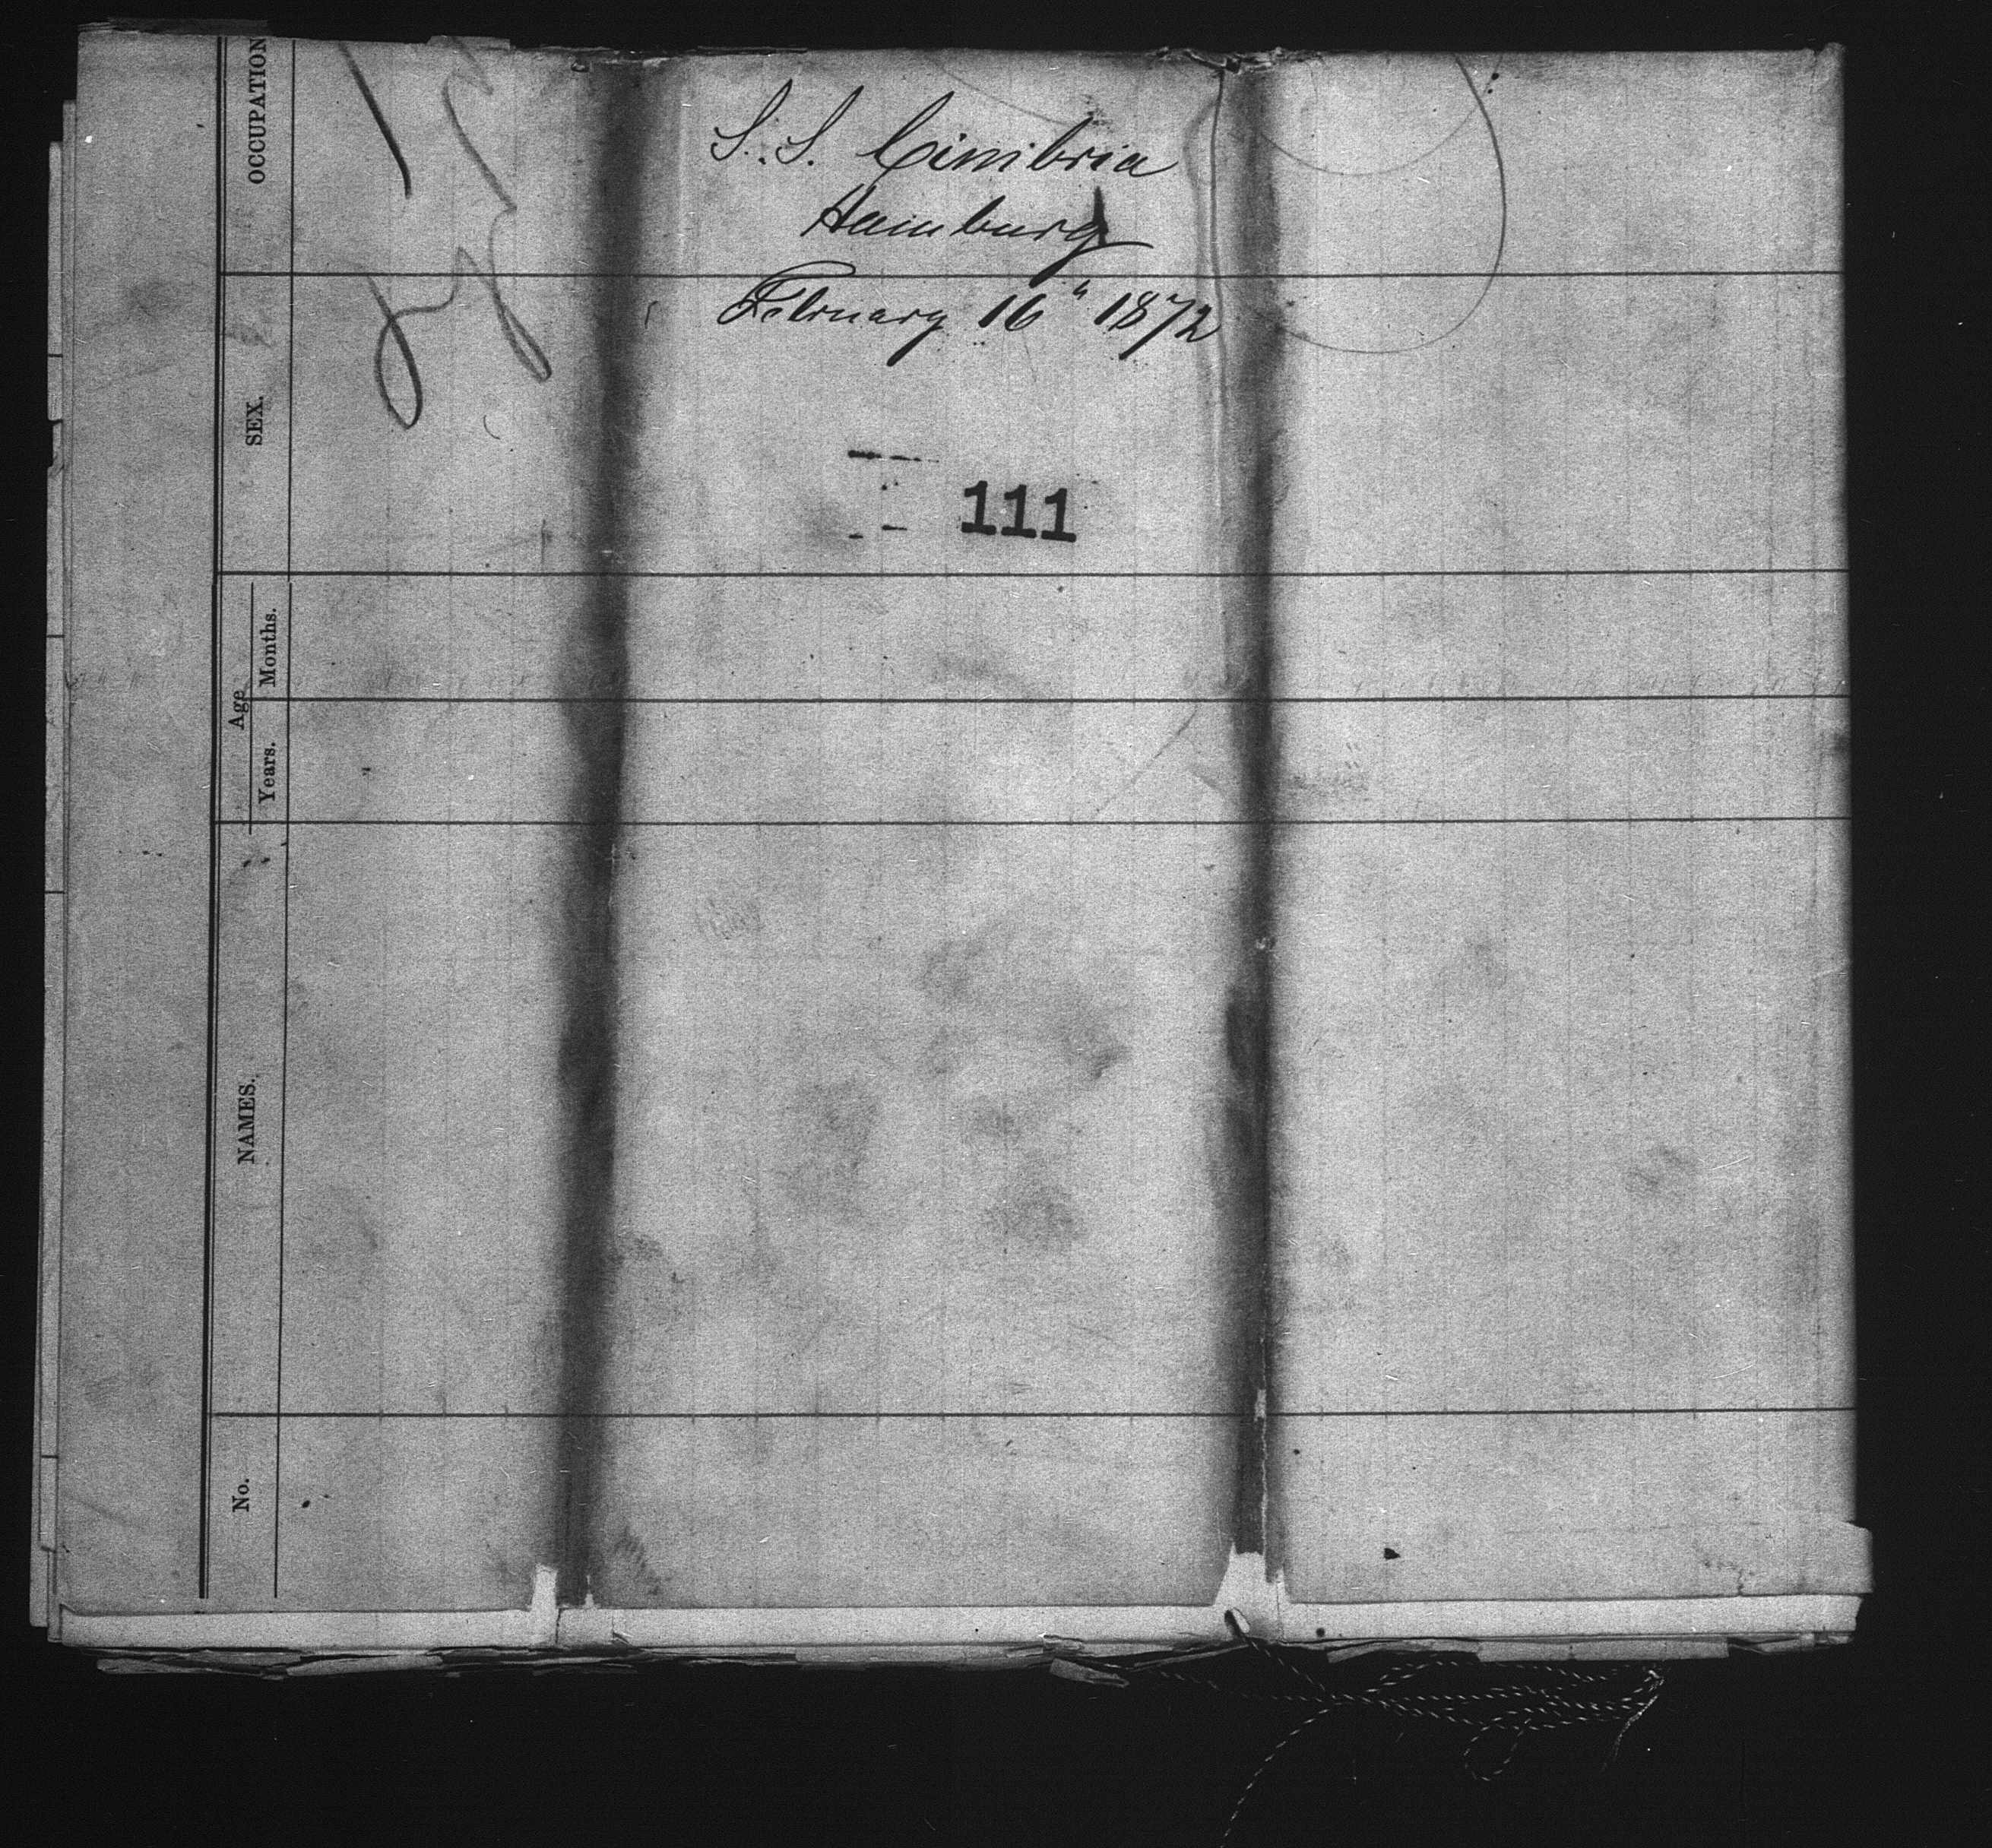 S.S. Cimbria
Hamburg
February 16" 1872
111
OCCUPATION
SEX.
Age
Months.
Years.
NAMES.
No.